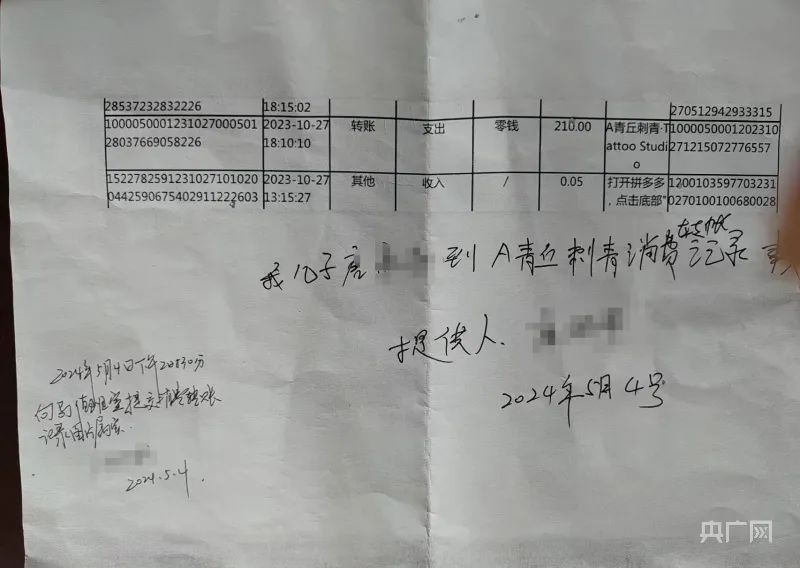 28537232832226 18:15:02 270512942933315
1000050001231027000501 2023-10-27 转账 支出 零钱 210.00 A青丘刺青·T 1000050001202310
28037669058226 18:10:10 attoo Studi 271215072776557
o
1522782591231027101020 2023-10-27 其他 收入 / 0.05 打开拼多多 1200103597703231
0442590675402911222603 13:15:27 ，点击底部" 0270100100680028
转账
我儿子唐 到A青丘刺青消费记录
提供人.
2024年5月4号
2024年5月4日下午20530分
记录图片
2024.5.4.
央广网